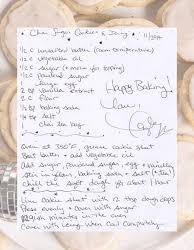 Chai Sugar Cookies & Icing
1/2 C unsalted butter (room temperature)
1/2 C vegetable oil
1/2 C sugar (+ more for topping)
1/2 C powdered sugar
1 egg
2 tsp vanilla extract
2 C flour
1/2 tsp baking soda
1/2 tsp salt
1 chai tea bag
Happy Baking!
Love,
Oven at 350°F, grease cookie sheet
Beat butter + add vegetable oil
Add sugar, powdered sugar, egg + vanilla
Stir in flour, baking soda + salt (+ tea!)
Chill the soft dough for about 1 hour
Line cookie sheet with 2 tbsp dough
Press evenly + cover with sugar
minutes in the oven
Cover with icing when cool completely